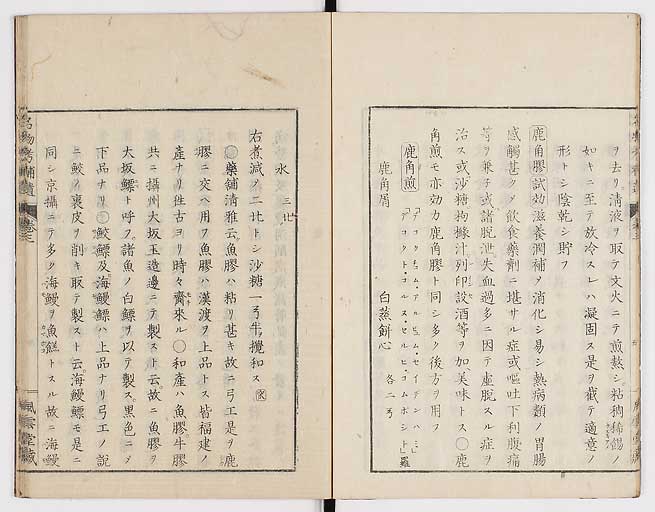 ヲ去リ清液ヲ取テ文火ニテ煎熬シ粘稠稀餳ノ
如キニ至テ放冷スレハ凝固ス是ヲ截テ適意ノ
形トシ陰乾シ貯フ
鹿角膠試効滋養潤補ノ消化シ易シ熱病類ノ胃腸
感觸甚クメ飲食藥劑ニ堪サル症或嘔吐下利腹痛
等リ兼子或諸脱泄失血過多ニ因テ虚脱スル症ヲ
治ス或沙糖拘櫞汁列印設酒等ヲ加美味トス〇鹿
角煎モ亦効力鹿角膠ト同シ多ク後方ヲ用フ
鹿角煎
鹿角屑 白蒸餅心 各二弓
水 三
右煮減メ二
トシ沙糖一弓半攪和ス
〇藥舗清雅云魚膠ハ粘リ甚キ故ニ弓工是ヲ鹿
膠ニ交ヘ用フ魚膠ハ漢渡ヲ上品トス皆福建ノ
産ナリ往古ヨリ時々齎來ル〇和産ハ魚膠牛膠
共ニ攝州大坂玉造邊ニテ製スト云故ニ魚膠ヲ
大坂鰾ト呼フ諸魚ノ白鰾ヲ以テ製ス黒色ニメ
下品ナリ〇鮫鰾及海鰻鰾ハ上品ナリ弓工ノ説
ニ鮫ノ裏皮ヲ削キ取テ製スト云海鰻鰾モ是ニ
同シ京攝ニテ多ク海鰻ヲ魚鮓トスル故ニ海鰻
名物考補遺
卷三
風雲堂藏